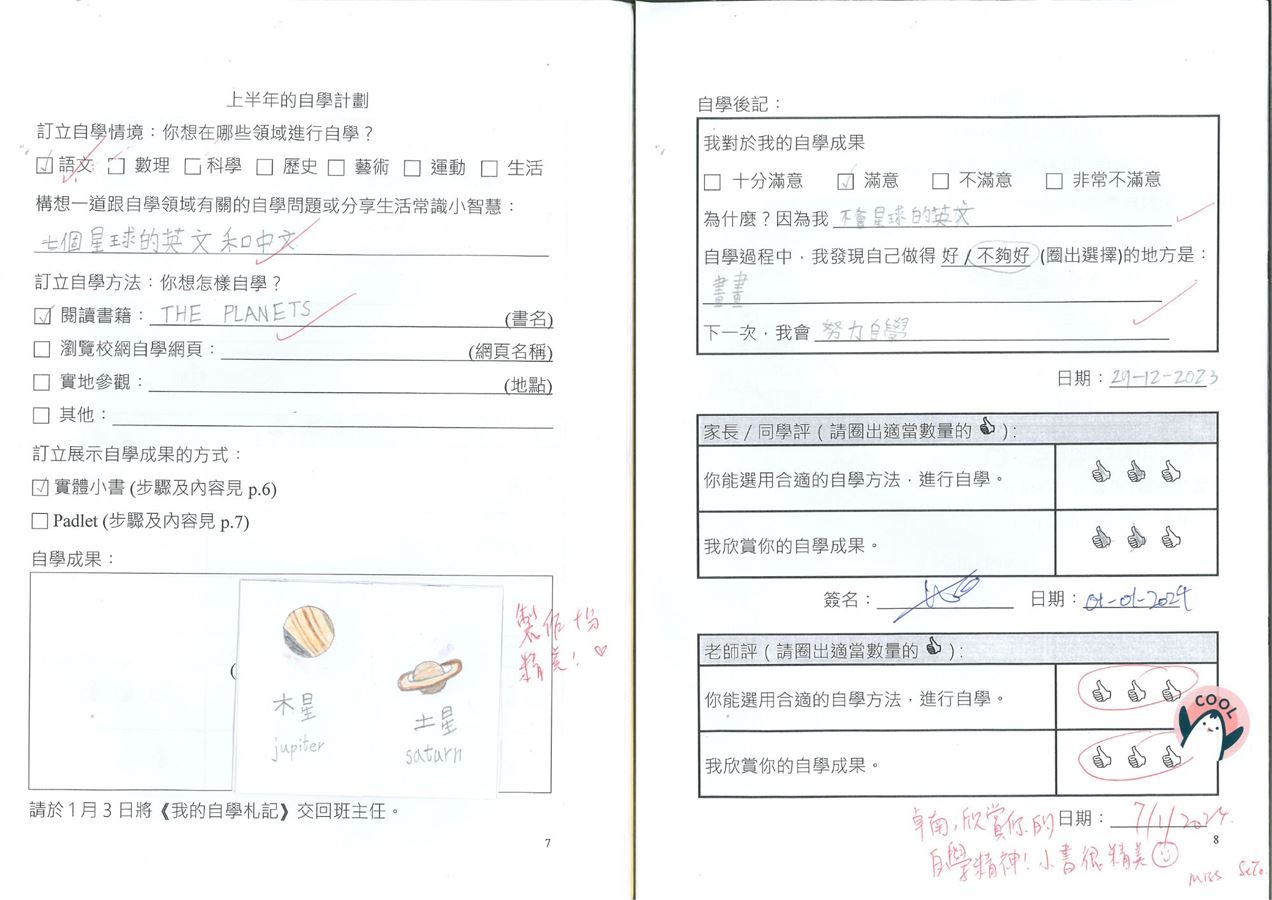 上半年的自學計劃
訂立自學情境：你想在哪些領域進行自學？
☑ 語文 □ 數理 □ 科學 □ 歷史 □ 藝術 □ 運動 □ 生活
構想一道跟自學領域有關的自學問題或分享生活常識小智慧：
七個星球的英文和中文
訂立自學方法：你想怎樣自學？
☑ 閱讀書籍： THE PLANETS (書名)
□ 瀏覽校網自學網頁： (網頁名稱)
□ 實地參觀： (地點)
□ 其他：
訂立展示自學成果的方式：
☑ 實體小書 (步驟及內容見 p.6)
□ Padlet (步驟及內容見 p.7)
自學成果：
木星
jupiter
土星
saturn
製作十分
精美！♡
請於1月3日將《我的自學札記》交回班主任。
7
自學後記：
我對於我的自學成果
□ 十分滿意 ☑ 滿意 □ 不滿意 □ 非常不滿意
為什麼？因為我 不會星球的英文
自學過程中，我發現自己做得 好 / 不夠好 (圈出選擇)的地方是：
畫畫
下一次，我會 努力自學
日期：29-12-2023
家長 / 同學評 ( 請圈出適當數量的 👍 )：
你能選用合適的自學方法，進行自學。 👍 👍 👍
我欣賞你的自學成果。 👍 👍 👍
簽名： 日期：01-01-2024
老師評 ( 請圈出適當數量的 👍 )：
你能選用合適的自學方法，進行自學。 👍 👍 👍
COOL
我欣賞你的自學成果。 👍 👍 👍
日期：7/1/2024
卓南，欣賞你的
自學精神！小書很精美☺
Miss SeTo
8